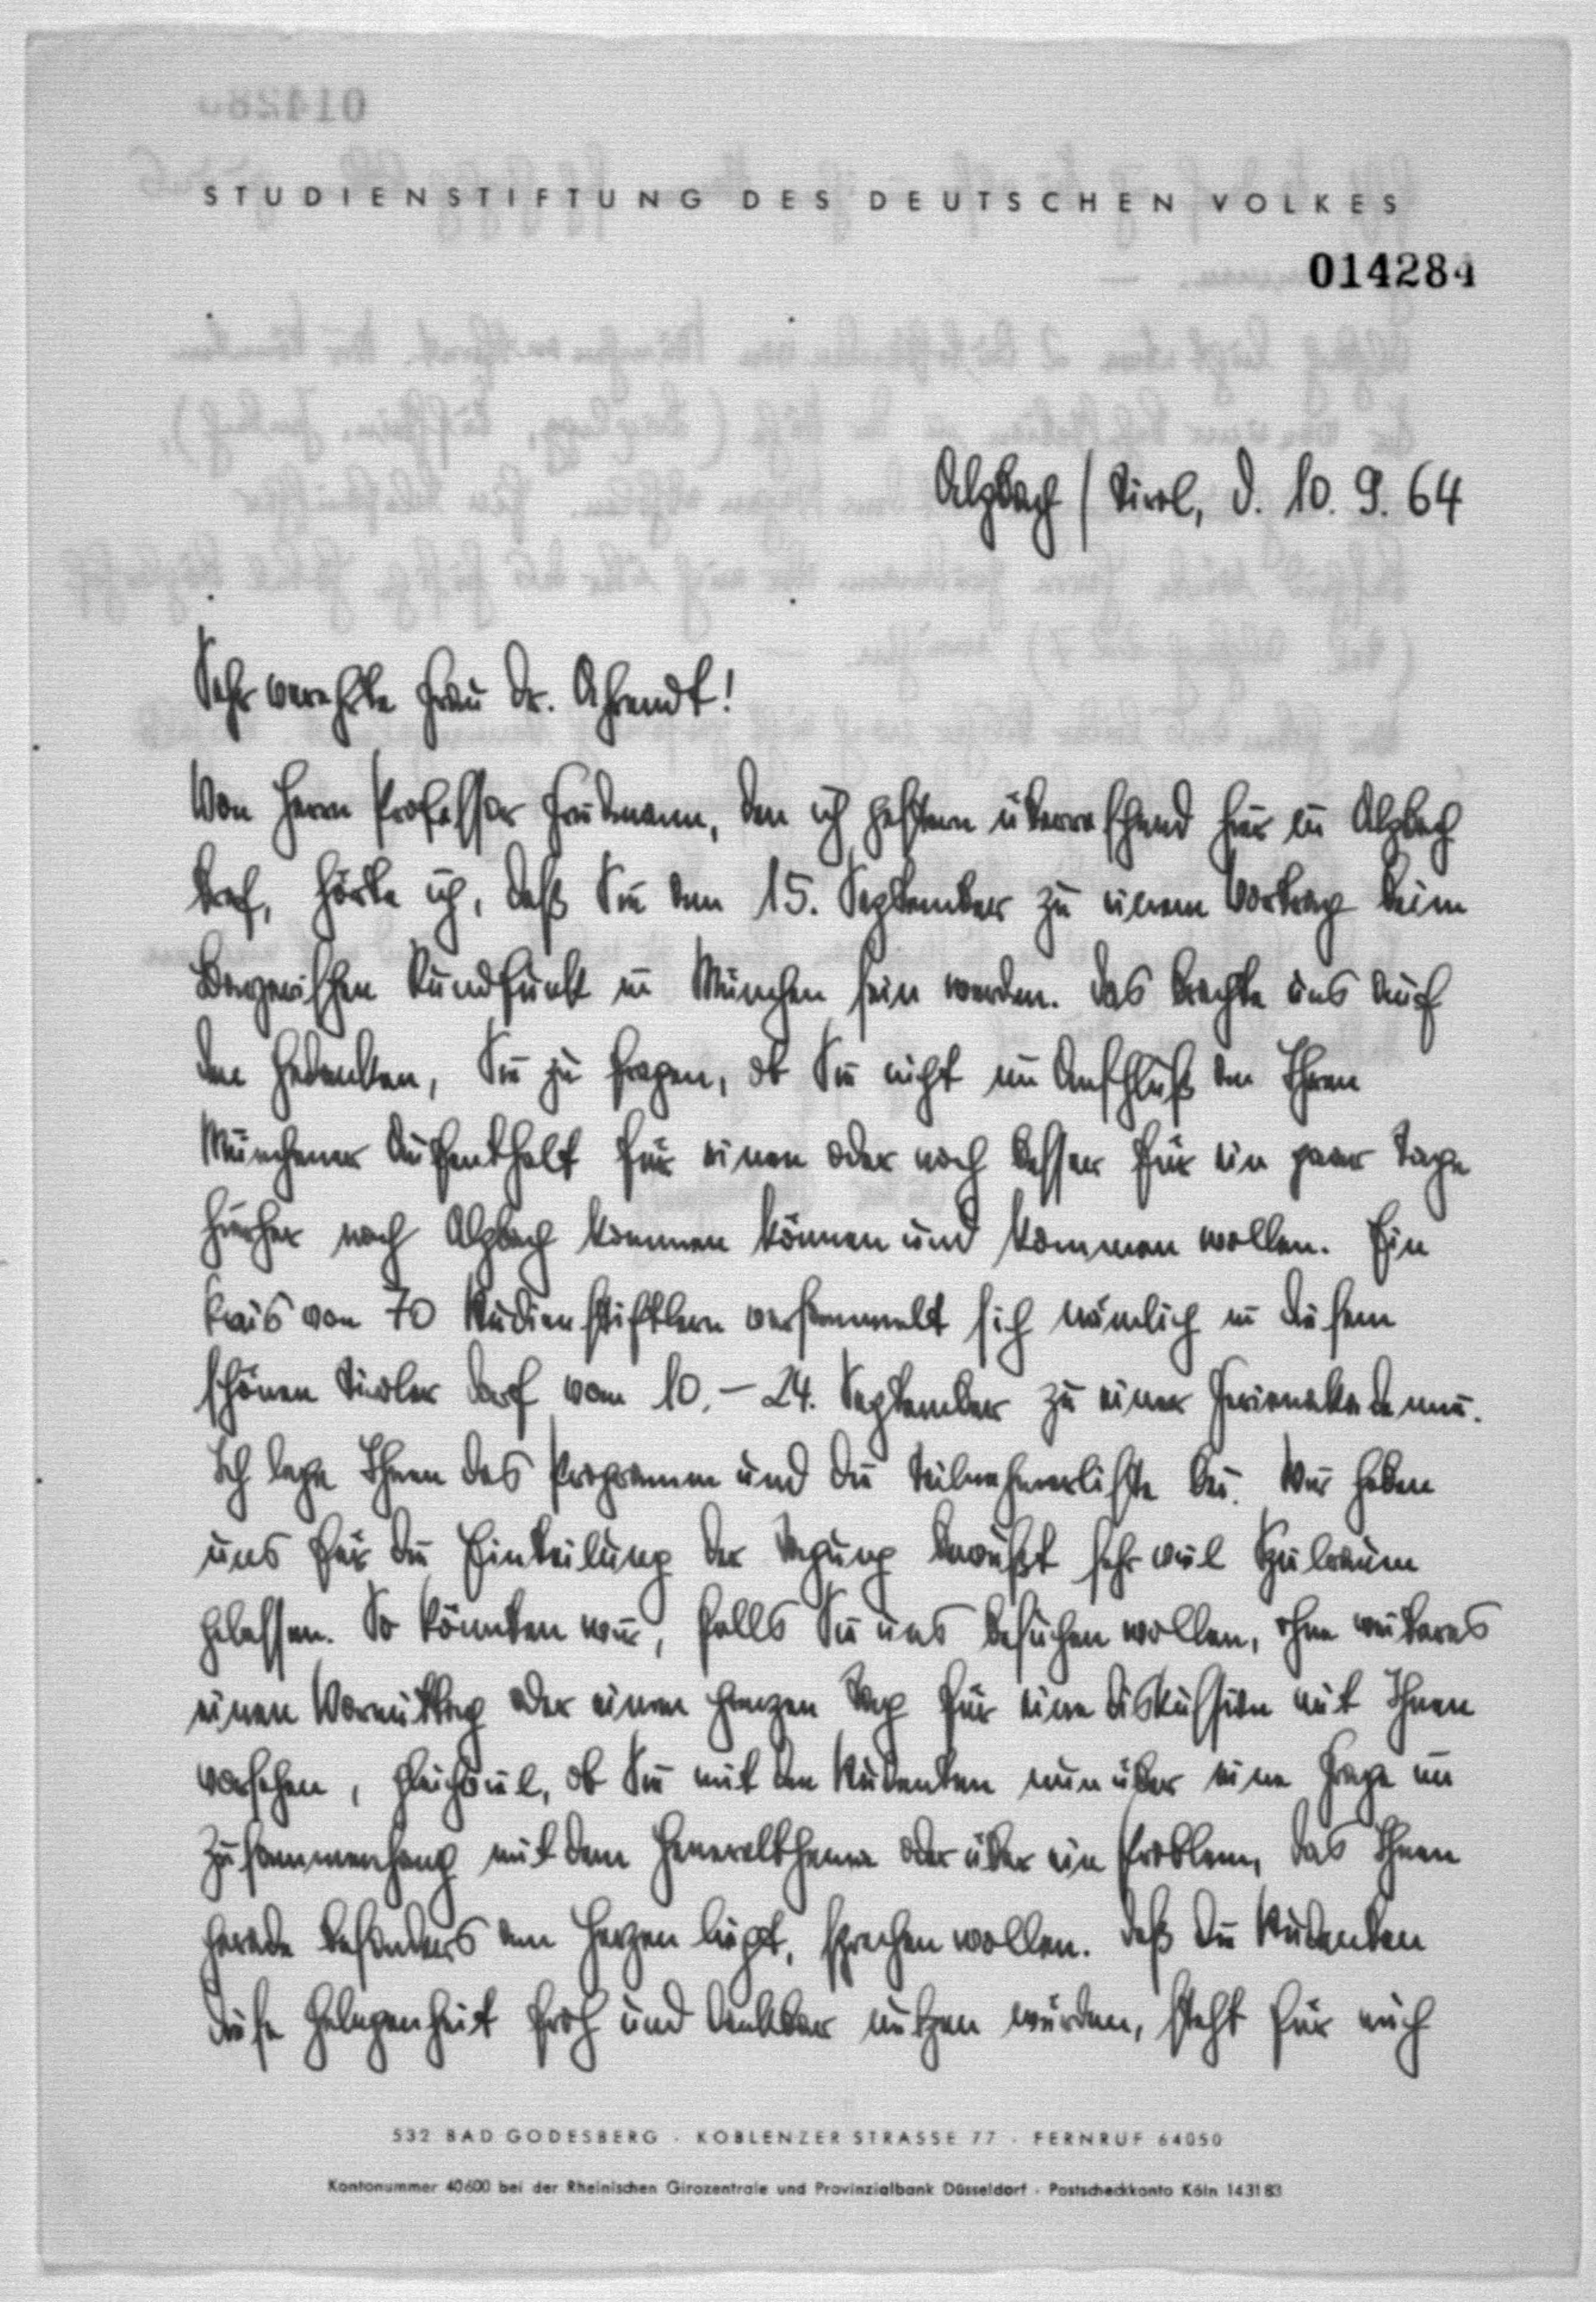 STUDIENSTIFTUNG DES DEUTSCHEN VOLKES
014284
Alpbach / Tirol, d. 10. 9. 64
Sehr verehrte Frau Dr. Ahrendt!
Von Herrn Professor Friedmann, den ich gestern überraschend hier in Alpbach
traf, hörte ich, daß Sie am 15. September zu einem Vortrag beim
Bayerischen Rundfunk in München sein werden. Das brachte uns auf
den Gedanken, Sie zu fragen, ob Sie nicht im Anschluß an Ihren
Münchener Aufenthalt für einen oder noch besser für ein paar Tage
hierher nach Alpbach kommen können und kommen wollen. Ein
Kreis von 70 Studienstiftlern versammelt sich nämlich in diesem
schönen Tiroler Dorf vom 10. – 24. September zu einer Ferienakademie.
Ich lege Ihnen das Programm und die Teilnehmerliste bei. Wir haben
uns für die Einteilung der Tagung bewußt sehr viel Spielraum
gelassen. So könnten wir, falls Sie uns besuchen wollen, ohne weiteres
einen Vormittag oder einen ganzen Tag für eine Diskussion mit Ihnen
vorsehen, gleichviel, ob Sie mit den Studenten nun über eine Frage im
Zusammenhang mit dem Generalthema oder über ein Problem, das Ihnen
gerade besonders am Herzen liegt, sprechen wollen. Daß die Studenten
diese Gelegenheit froh und dankbar nützen würden, steht für mich
532 BAD GODESBERG · KOBLENZER STRASSE 77 · FERNRUF 64050
Kontonummer 40600 bei der Rheinischen Girozentrale und Provinzialbank Düsseldorf · Postscheckkonto Köln 143183